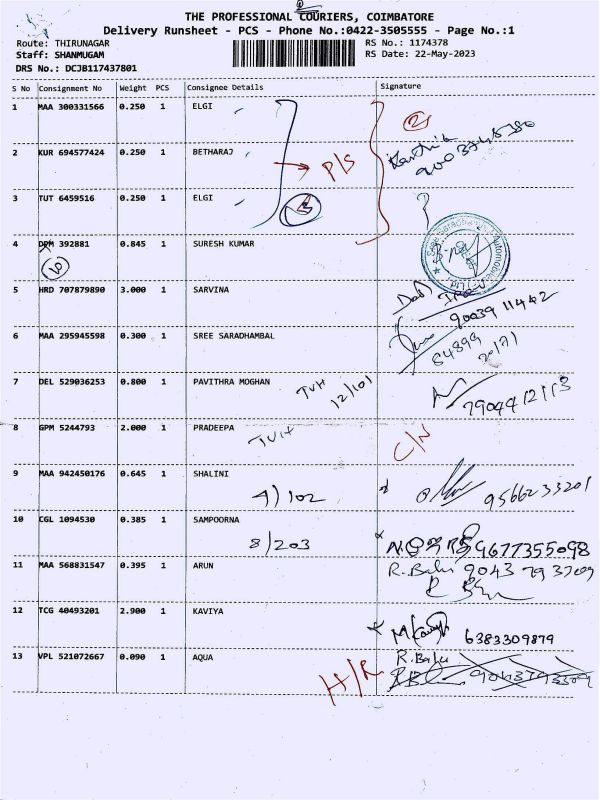 THE PROFESSIONAL COURIERS, COIMBATORE
Delivery Runsheet - PCS - Phone No.:0422-3505555 - Page No.:1
Route: THIRUNAGAR RS No.: 1174378
Staff: SHANMUGAM RS Date: 22-May-2023
DRS No.: DCJB117437801
S No Consignment No Weight PCS Consignee Details Signature
1 MAA 300331566 0.250 1 ELGI
2
2 KUR 694577424 0.250 1 BETHARAJ P/S
3 TUT 6459516 0.250 1 ELGI ?
4 DPM 392881 0.845 1 SURESH KUMAR
5 HRD 707879890 3.000 1 SARVINA
9003911442
6 MAA 295945598 0.300 1 SREE SARADHAMBAL
84899
20171
7 DEL 529036253 0.800 1 PAVITHRA MOGHAN TVH 12/101
8 GPM 5244793 2.000 1 PRADEEPA TVH C/N
9 MAA 942450176 0.645 1 SHALINI 9566233201
A/102
10 CGL 1094530 0.385 1 SAMPOORNA
8/203 9677355098
11 MAA 568831547 0.395 1 ARUN R. Balu 9043793309
12 TCG 40493201 2.900 1 KAVIYA
6383309879
13 VPL 521072667 0.090 1 AQUA R. Balu
H/R 9043793309